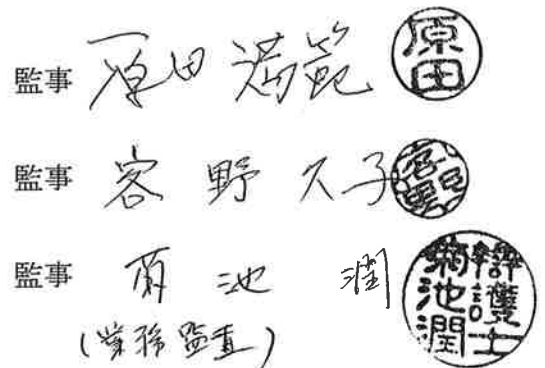 監事 原田 満範 原田
監事 客野 久子 客野
監事 菊池 潤 辯護士菊池潤
(業務監査)